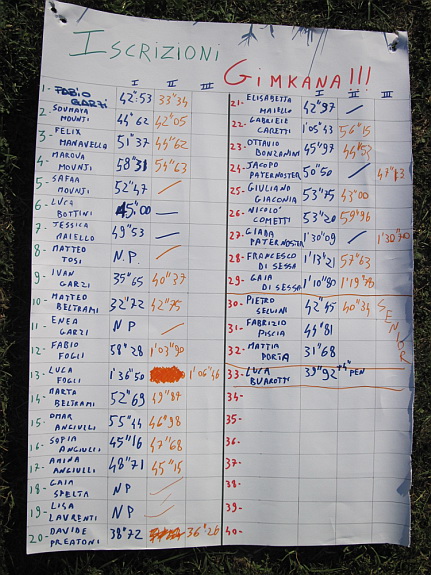 ISCRIZIONI
GIMKANA!!!
I II III
1- FABIO GARZI 42"53 33"34
2- SOUMAYA MOUNJI 44"62 42"05
3- FELIX MANAVELLA 51"37 44"62
4- MAROUA MOUNJI 58"31 54"63
5- SAFAA MOUNJI 52"47 /
6- LUCA BOTTINI 45"00 /
7- JESSICA MAIELLO 49"53 /
8- MATTEO TOSI N.P. /
9- IVAN GARZI 35"65 40"37
10- MATTEO BELTRAMI 32"72 42"75
11- ENEA GARZI NP /
12- FABIO FOGLI 58"28 1'03"90
13- LUCA FOGLI 1'36"50 1'06"46
14- MARTA BELTRAMI 52"69 49"84
15- OMAR ANGIULLI 55"44 46"98
16- SOFIA ANGIULLI 45"16 47"68
17- AMINA ANGIULLI 48"71 45"15
18- GAIA SPELTA NP /
19- LISA LAURENTI NP /
20- DAVIDE PREATONI 38"72 36"26
I II III
21- ELISABETTA MAIELLO 42"97 /
22- GABRIELE CARETTI 1'05"43 56"15
23- OTTAVIO BONZANINI 45"97 44"52
24- JACOPO PATERNOSTER 50"50 / 47"13
25- GIULIANO GIACONIA 53"75 43"00
26- NICOLO' COMETTI 53"20 59"96
27- GIADA PATERNOSTER 1'30"09 / 1'30"70
28- FRANCESCO DI SESSA 1'13"21 57"63
29- GAIA DI SESSA 1'10"80 1'19"78
30- PIETRO SELVINI 42"45 40"34
31- FABRIZIO PISCIA 44"81
32- MATTIA PORTA 31"68
33- LUCA BUAROTTI 39"92 +4" PEN
SENIOR
34-
35-
36-
37-
38-
39-
40-